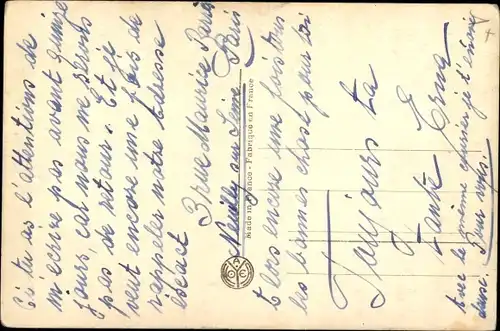 Si tu as l'attentions de
m ecrire pas avant quinze
jours, car nous ne serons
pas de retour. Et je
veut encore une fois de
rappeler notre adresse
escact 3 rue Maurice
Neuilly sur Seine Paris
Made in France - Fabriqué en France
et lors encire une fois tres
les bonnes chose pour toi
Toujours ta
Tante Erna
avec le même je t'envoie
pour vous.